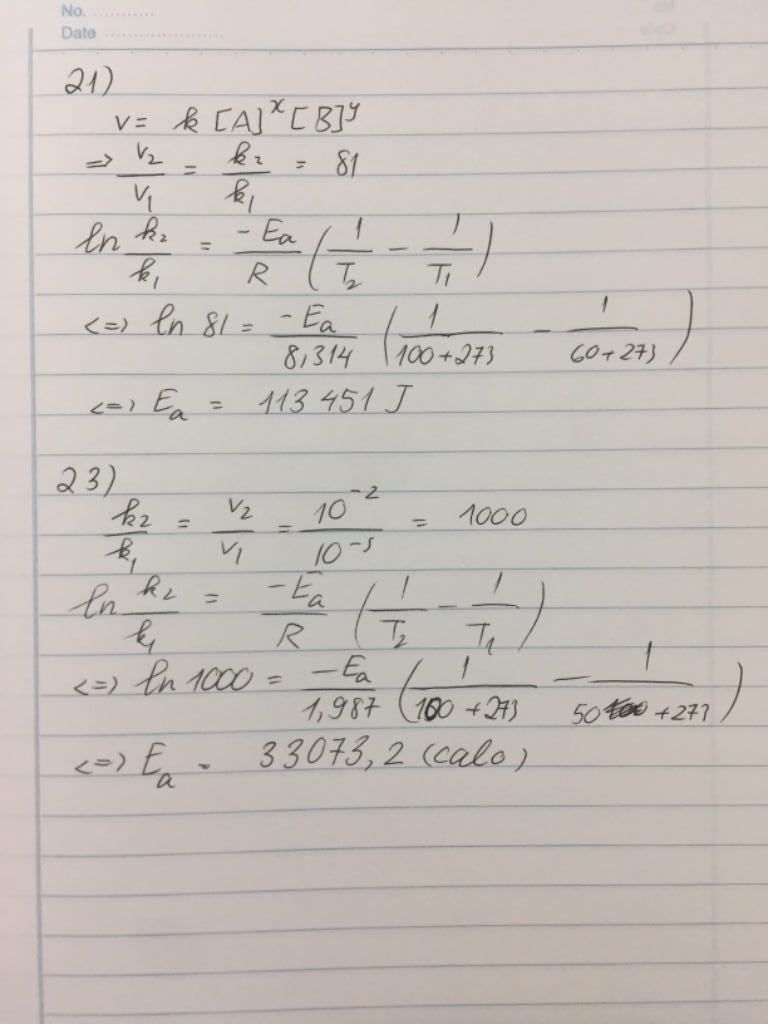 No. ............
Date ........................
21)
v = k [A]^x [B]^y
=> v2/v1 = k2/k1 = 81
ln k2/k1 = -Ea/R (1/T2 - 1/T1)
<=> ln 81 = -Ea/8,314 (1/(100+273) - 1/(60+273))
<=> Ea = 113 451 J
23)
k2/k1 = v2/v1 = 10^-2/10^-5 = 1000
ln k2/k1 = -Ea/R (1/T2 - 1/T1)
<=> ln 1000 = -Ea/1,987 (1/(100+273) - 1/(50+273))
<=> Ea = 33073,2 (calo)